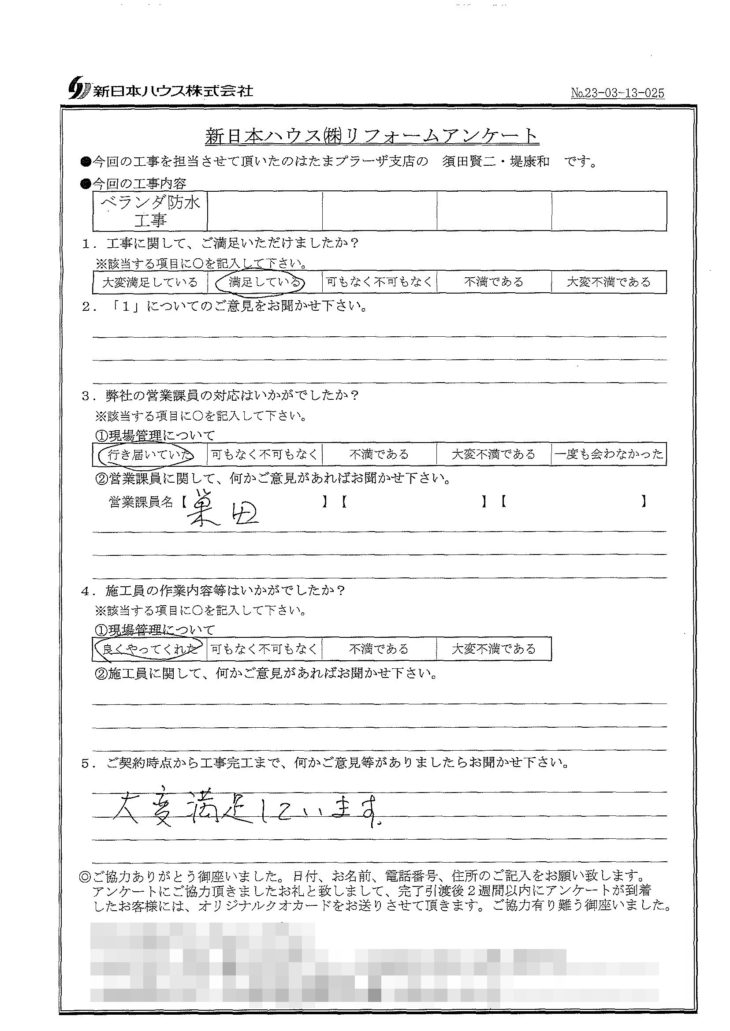 新日本ハウス株式会社
№23-03-13-025
新日本ハウス㈱リフォームアンケート
●今回の工事を担当させて頂いたのはたまプラーザ支店の 須田賢二・堤康和 です。
●今回の工事内容
ベランダ防水
工事
1.工事に関して、ご満足いただけましたか?
※該当する項目に○を記入して下さい。
大変満足している 満足している 可もなく不可もなく 不満である 大変不満である
2.「1」についてのご意見をお聞かせ下さい。
3.弊社の営業課員の対応はいかがでしたか?
※該当する項目に○を記入して下さい。
①現場管理について
行き届いていた 可もなく不可もなく 不満である 大変不満である 一度も会わなかった
②営業課員に関して、何かご意見があればお聞かせ下さい。
営業課員名【 巣田 】【 】【 】
4.施工員の作業内容等はいかがでしたか?
※該当する項目に○を記入して下さい。
①現場管理について
良くやってくれた 可もなく不可もなく 不満である 大変不満である
②施工員に関して、何かご意見があればお聞かせ下さい。
5.ご契約時点から工事完工まで、何かご意見等がありましたらお聞かせ下さい。
大変満足しています。
◎ご協力ありがとう御座いました。日付、お名前、電話番号、住所のご記入をお願い致します。
アンケートにご協力頂きましたお礼と致しまして、完了引渡後2週間以内にアンケートが到着
したお客様には、オリジナルクオカードをお送りさせて頂きます。ご協力有り難う御座いました。